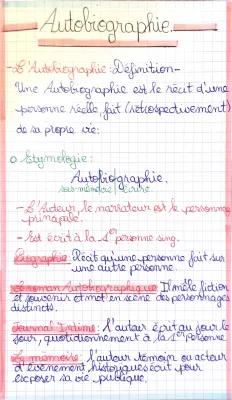 Autobiographie.
- L'Autobiographie : Définition -
Une Autobiographie est le récit d'une
personne réelle, fait (rétrospectivement)
de sa propre vie:
o Etymologie:
Autobiographie.
soi-même vie écrire.
- L'Auteur, le narrateur est le personnage
principale.
- Est écrit à la 1ère personne sing.
Biographie: Récit qu'une personne fait sur
une autre personne.
Le roman Autobiographique: Il mêle fiction
et souvenir et met en scène des personnages
distincts.
Journal Intime: l'autaur écrit au jour le
jour, quotidiennement à la 1ère personne
Les mémoires: l'auteur témoin ou acteur
d'évenement historiques écrit pour
exposer sa vie publique.